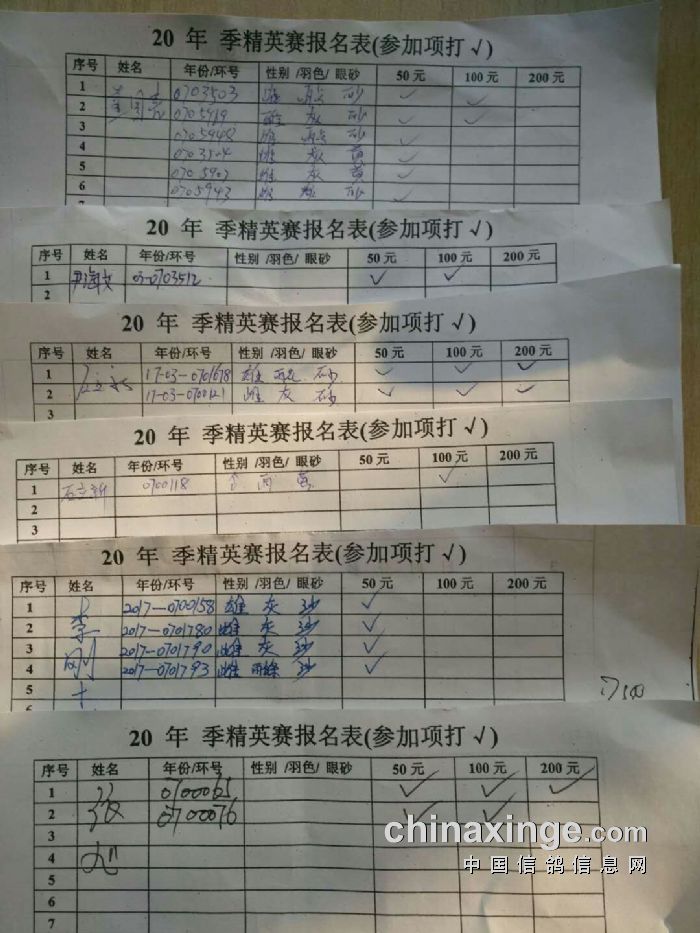 20 年 季精英赛报名表(参加项打 √)
序号 姓名 年份/环号 性别 /羽色/ 眼砂 50 元 100 元 200 元
1 0703503 雄 砂 ✓ ✓
2 灰 砂 ✓ ✓
3 砂 ✓
灰 黄 ✓
5 雌 灰 黄 ✓
6 0705943 砂 ✓
7
20 年 季精英赛报名表(参加项打 √)
序号 姓名 年份/环号 性别 /羽色/ 眼砂 50 元 100 元 200 元
1 03-0703512 ✓ ✓
2
20 年 季精英赛报名表(参加项打 √)
序号 姓名 年份/环号 性别 /羽色/ 眼砂 50 元 100 元 200 元
1 17-03-0701678 雄 砂 ✓ ✓ ✓
2 17-03-0700121 雌 灰 砂 ✓ ✓ ✓
3
20 年 季精英赛报名表(参加项打 √)
序号 姓名 年份/环号 性别 /羽色/ 眼砂 50 元 100 元 200 元
1 石立新 0700118 ✓
2
3
20 年 季精英赛报名表(参加项打 √)
序号 姓名 年份/环号 性别 /羽色/ 眼砂 50 元 100 元 200 元
1 2017-0700158 雄 灰 沙 ✓
2 李 2017-0701780 雌 灰 沙 ✓
3 刚 2017-0701790 雌 灰 沙 ✓
4 2017-0701793 雌 雨绛 沙 ✓
5
6
20 年 季精英赛报名表(参加项打 √)
序号 姓名 年份/环号 性别 /羽色/ 眼砂 50 元 100 元 200 元
1 0700065 ✓ ✓ ✓
2 0700076 ✓ ✓
3
4
5
6
7
chinaxinge.com
中国信鸽信息网